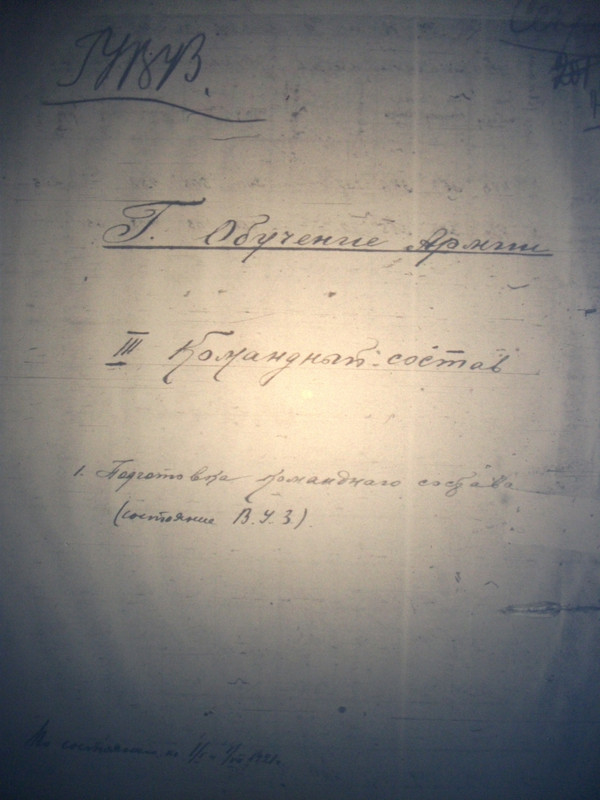 ГУВУЗ.
Г. Обучение Армии
III Командный состав
1. Подготовка командного состава
(состояние В.У.З.)
По состоянию